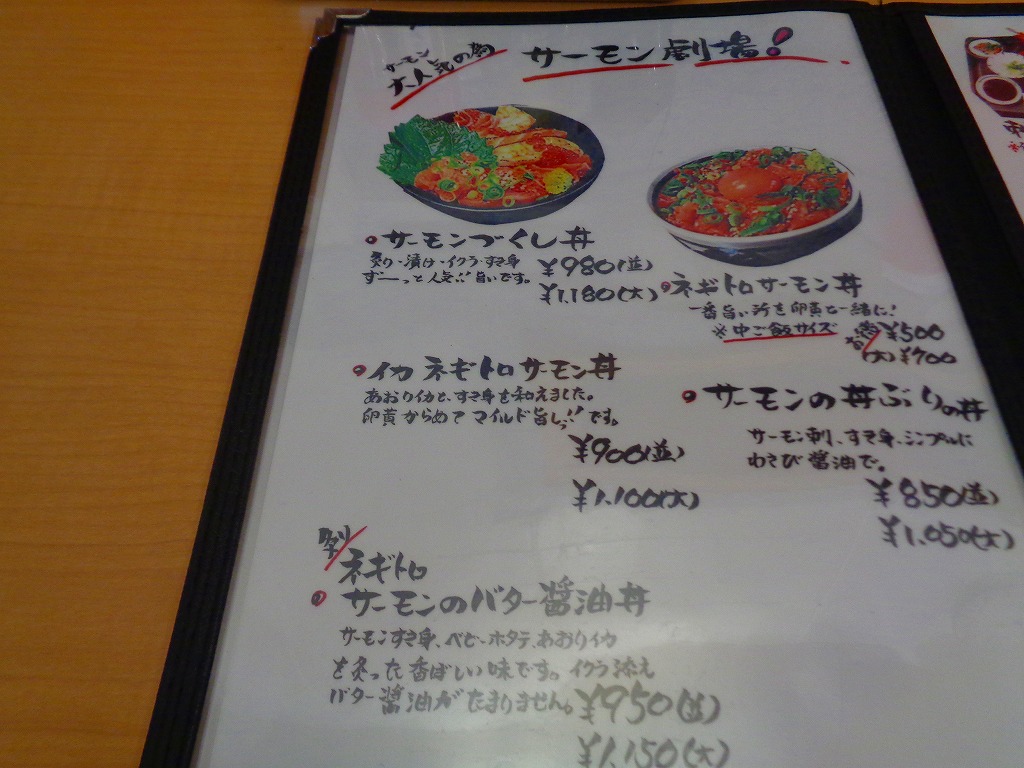 サーモン
大人気の
サーモン劇場!
サーモンづくし丼
炙り・漬け・イクラ・すき身
ず――っと人気!!旨いです。
¥980(並)
¥1,180(大)
ネギトロサーモン丼
一番旨い所を卵黄と一緒に!
※中ご飯サイズ
¥500
(大)¥700
イカネギトロサーモン丼
あおりイカと、すき身を和えました。
卵黄からめてマイルド旨しっ!!です。
¥900(並)
¥1,100(大)
サーモンの丼ぶりの丼
サーモン刺、すき身、シンプルに
わさび醤油で。
¥850(並)
¥1,050(大)
ネギトロ
サーモンのバター醤油丼
サーモンすき身、ベビーホタテ、あおりイカ
を炙った香ばしい味です。イクラ添え
バター醤油がたまりません。
¥950(並)
¥1,150(大)